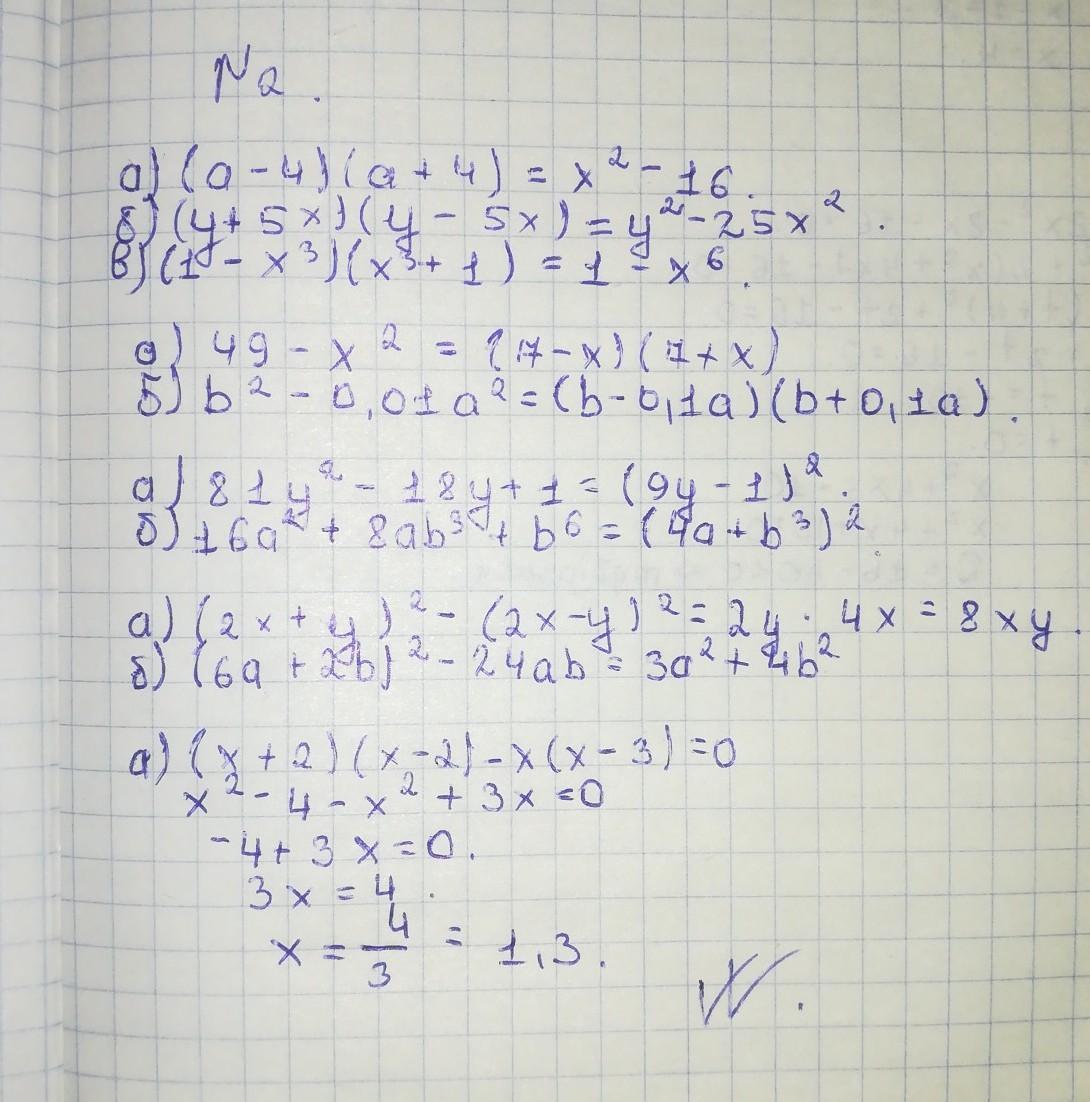 N2.
а) (a - 4)(a + 4) = x² - 16.
б) (y + 5x)(y - 5x) = y² - 25x².
в) (1 - x³)(x³ + 1) = 1 - x⁶.
а) 49 - x² = (7 - x)(7 + x)
б) b² - 0,01a² = (b - 0,1a)(b + 0,1a).
а) 81y² - 18y + 1 = (9y - 1)².
б) 16a² + 8ab³ + b⁶ = (4a + b³)².
а) (2x + y)² - (2x - y)² = 2y · 4x = 8xy.
б) (6a + 2b)² - 24ab = 3a² + 4b²
а) (x + 2)(x - 2) - x(x - 3) = 0
x² - 4 - x² + 3x = 0
-4 + 3x = 0.
3x = 4.
x = 4/3 = 1,3.